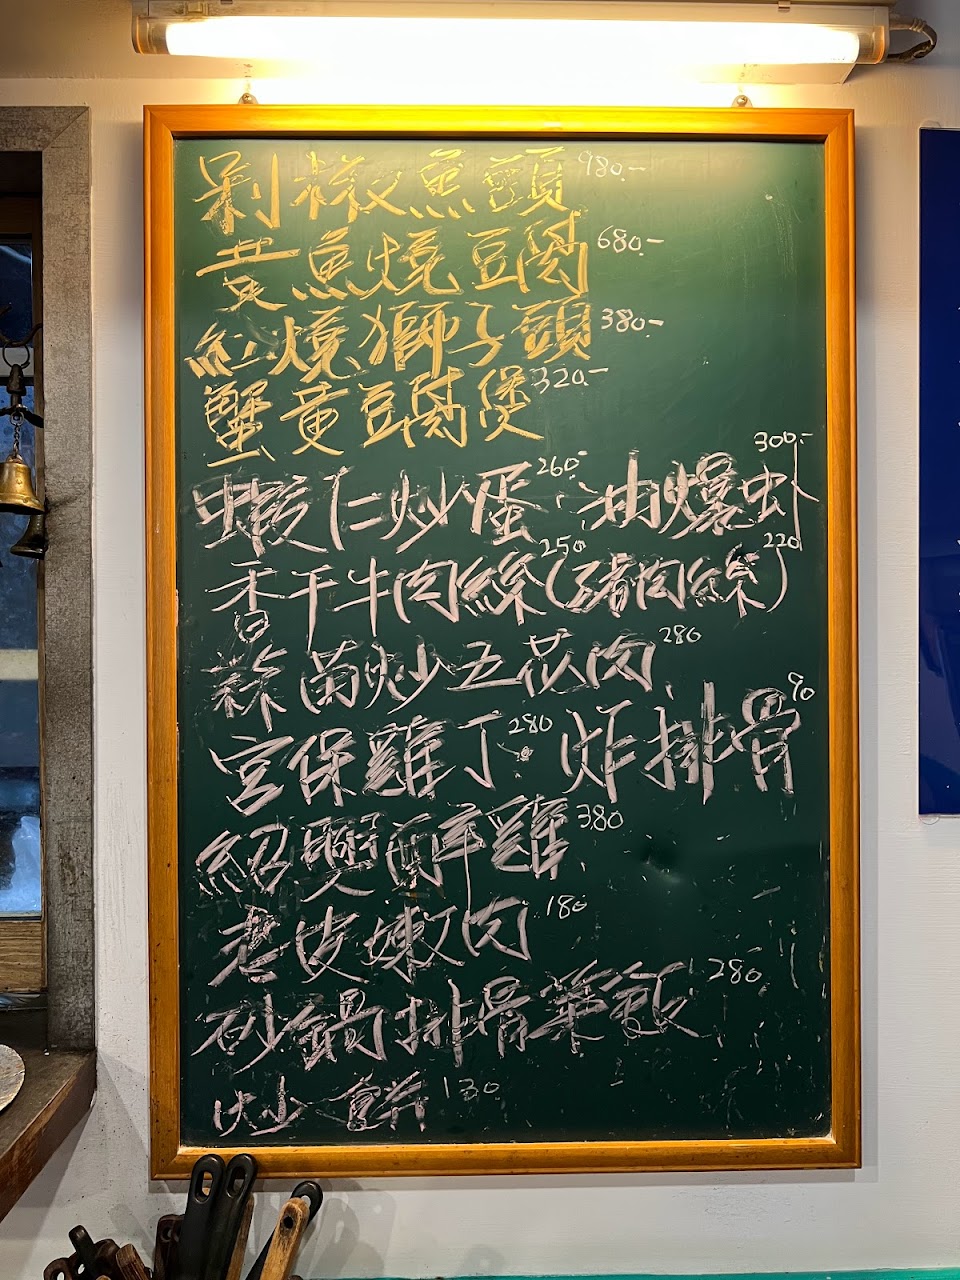 剁椒魚頭 980.-
黃魚燒豆腐 680.-
紅燒獅子頭 380.-
蟹黃豆腐煲 320.-
蝦仁炒蛋 260.- 油爆虾 300.-
香干牛肉絲 250 (豬肉絲) 220
蒜苗炒五花肉 280
宮保雞丁 280 炸排骨 90
紹興醉雞 380
老皮嫩肉 180
砂鍋排骨 280
炒餅 130